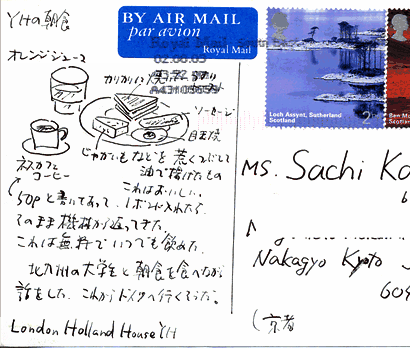 YHの朝食
オレンジジュース
カリカリ
ソーセージ
目玉焼
ネスカフェ
コーヒー
じゃがいもなどを荒くつぶして
油で揚げたもの
これはおいしい。
50Pと書いてあって、1ポンド入れたら
そのまま機械から返ってきた。
これは無料でいつでも飲めた。
北九州の大学生と朝食を食べながら
話をした。これからドイツへ行くそうだ。
London Holland House YH
BY AIR MAIL
par avion
Royal Mail
Royal Mail
02.08.03
Loch Assynt, Sutherland
Scotland
2nd
Ben
Scotland
MS. Sachi Ko
Nakagyo Kyoto
604
(京都